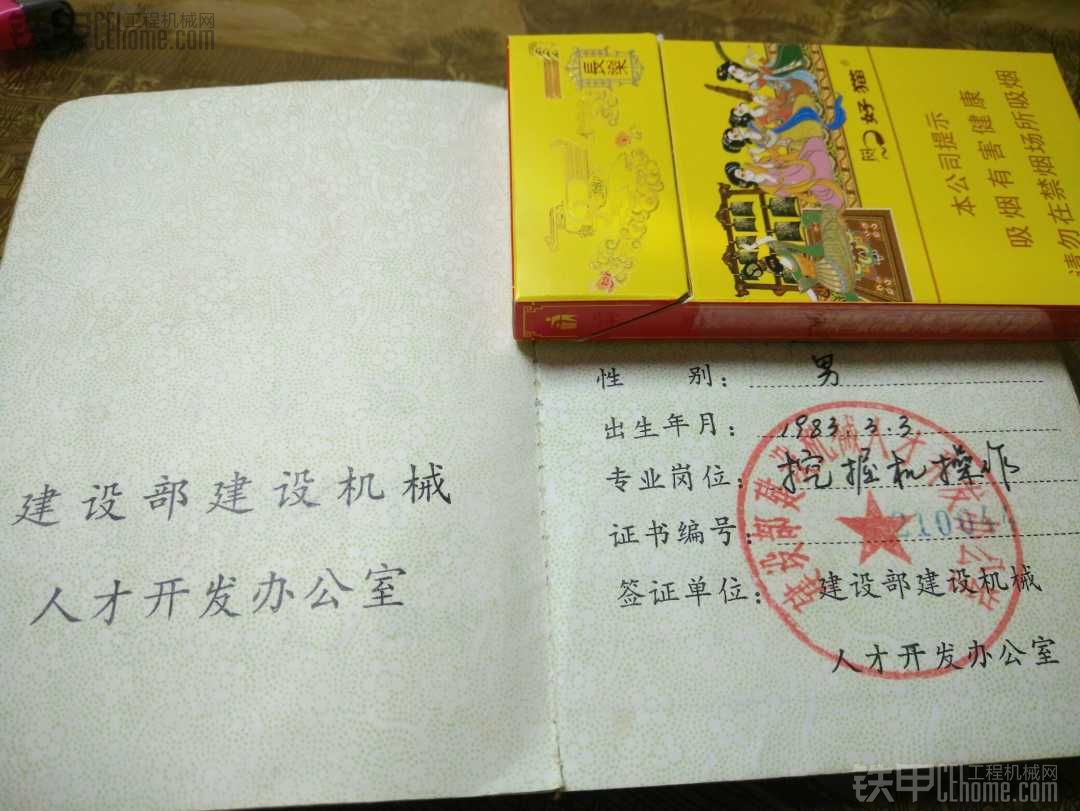 铁甲 工程机械网
CEhome.com
長樂
好猫
本公司提示
吸烟有害健康
请勿在禁烟场所吸烟
性 别: 男
出生年月: 1983.3.3
专业岗位: 挖握机操作
证书编号:
签证单位: 建设部建设机械
人才开发办公室
建设部建设机械
人才开发办公室
建设部建设机械人才开发办公室
铁甲 工程机械网
CEhome.com